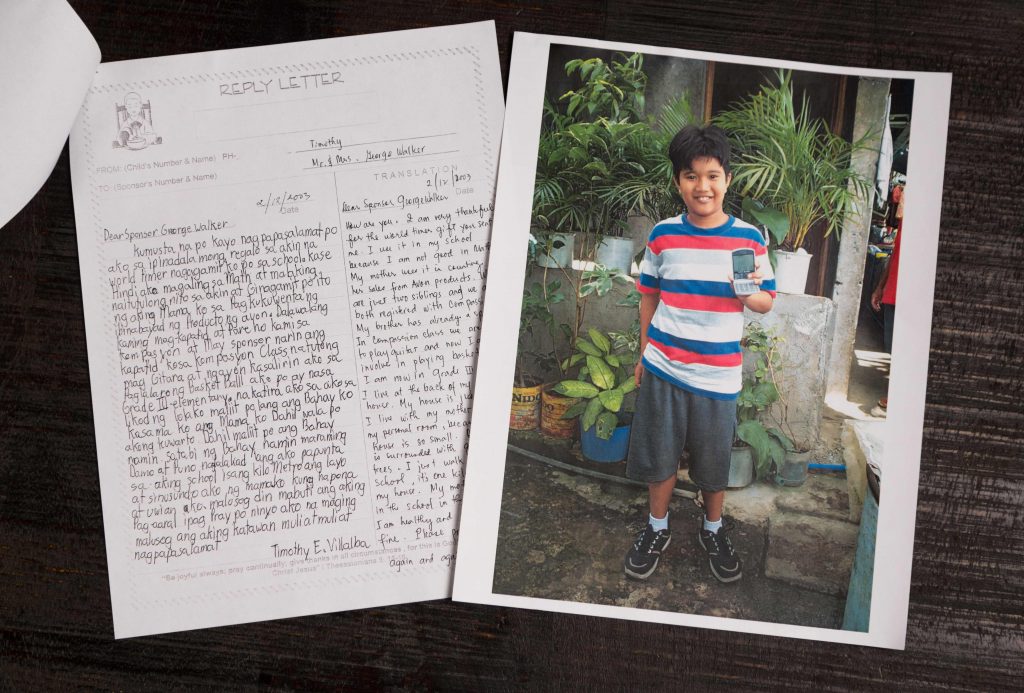 REPLY LETTER
FROM: (Child's Number & Name) PH-
Timothy
TO: (Sponsor's Number & Name)
Mr. & Mrs. George Walker
2/12/2003
Date
Dear Sponser George Walker
Kumusta na po Kayo nag papasalamat po
ako sa ipinadala mong regalo sa akin na
world timer nagagamit ko po sa school kase
Hindi ako magaling sa Math at malaking
naitutulong nito sa akin at Ginagamit po ito
ng aking Mama ko sa Pag kukuwenta ng
binabayad ng Producto ng avon. Dalawa lang
kaming mag-kapatid at Pare ho kami sa
kompasyon at May sponser narin ang
kapatid kosa kompasyon Class natutong
mag Gitara at ngayon Kasalirin ako sa
Paglalarong Basket Ball ako po ay nasa
Grade III-elementary, nakatira ako sa ako sa
Likod ng lolako maliit po lang ang Bahay ko
Kasama ko ang Mama ko Dahil wala po
akong kuwarto Dahil maliit po ang Bahay
namin, sa tabi ng Bahay namin maraming
Damo at Puno naglalakad lang ako papunta
sa aking school isang kilo Metro ang layo
at sinusundo ako, ng mamako kung hapon
at uwian ako, malosog din mabuti ang aking
Pag aaral ipag Pray po ninyo ako na maging
malusog ang aking katawan muli at muli at
nagpapasalamat
Timothy E. Villalba
TRANSLATION
2/12/2003
Date
Dear Sponser George Walker
How are you. I am very thankful
for the world timer gift you sent
me. I use it in my school
because I am not good in Mat
My mother uses it in counting
her sales from Avon products.
are just two siblings and we
both registered with Compass
My brother has already a
In Compassion class we are
to play guitar and now I a
involve in playing basket
I am now in Grade III
I live at the back of my
house. My house is ju
I live with my mother
my personal room, beca
house is so small.
is surrounded with
trees. I just walk
school, its one kil
my house. My mo
in the school in
I am healthy and
fine. Please p
again and aga
"Be joyful always; pray continually; give thanks in all circumstances, for this is Go
Christ Jesus" I Thessalonians 5:16-18